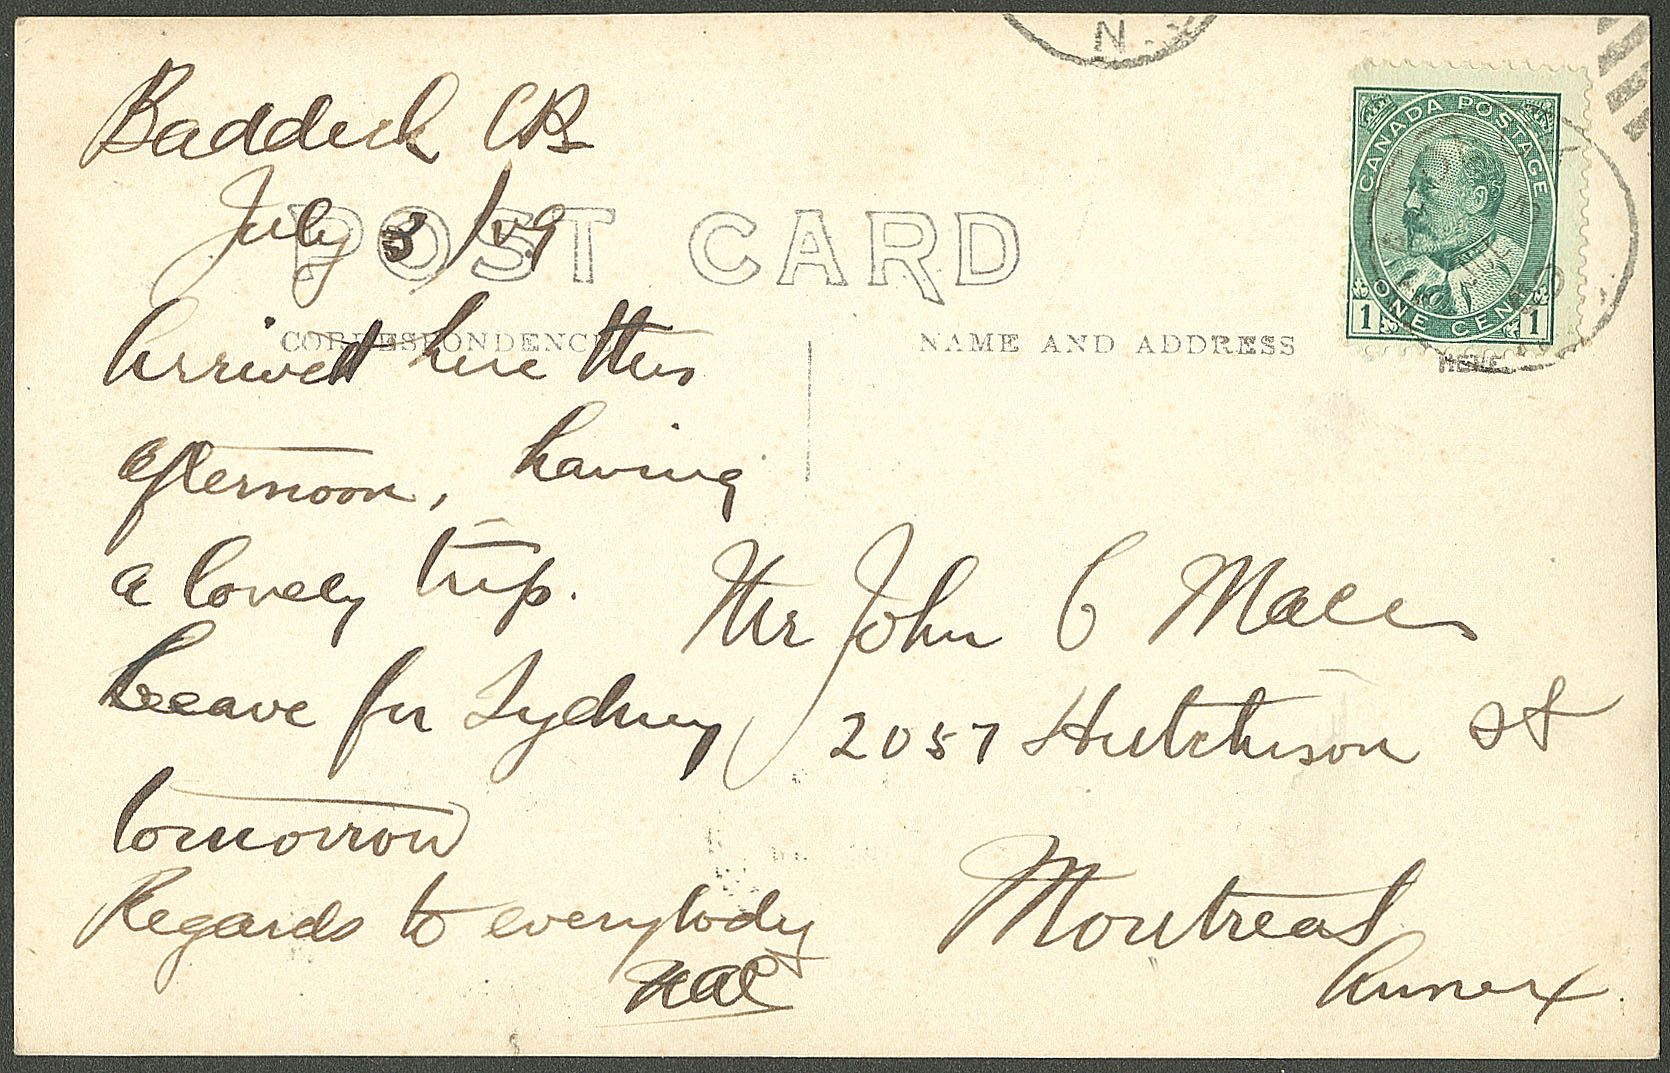 Baddeck CB
July 3/09
Arrived here this
afternoon, having
a lovely trip.
Leave for Sydney
tomorrow
Regards to everybody
POST CARD
CORRESPONDENCE
NAME AND ADDRESS
CANADA POSTAGE
ONE CENT
1 1
N.
Mr John C
2057 Hutchison St
Montreal
Annex